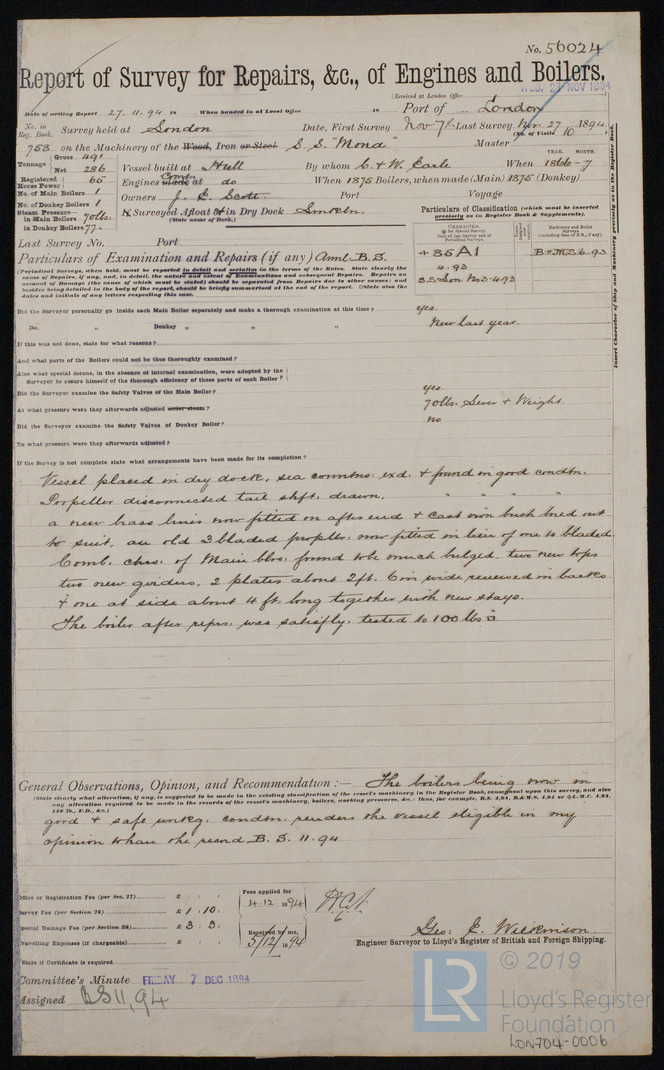 No. 56024
Report of Survey for Repairs, &c., of Engines and Boilers.
(Received at London Office WED. 28 NOV 1894
Date of writing Report 27.11.94 When handed in at Local Office Port of London
No. in Reg. Book. Survey held at London Date, First Survey Nov 7th Last Survey Nov 27 1894
(No. of Visits 10)
753 on the Machinery of the Wood, Iron or Steel S. S. Mona Master
Tonnage Gross 491 Net 286
Vessel built at Hull By whom C. & W. Earle When 1866-7
YEAR. MONTH.
Registered Horse Power 65
Engines made at do When 1875 Boilers, when made (Main) 1875 (Donkey)
No. of Main Boilers 1
Owners J. E. Scott Port Voyage
No. of Donkey Boilers 1
Steam Pressure in Main Boilers 70lbs.
in Donkey Boilers 77
If Surveyed Afloat or in Dry Dock
(State name of Dock.)
Particulars of Classification (which must be inserted precisely as in Register Book & Supplements).
CHARACTER.
Machinery and Boiler Surveys (including date of N.B., if any).
+ 85 A1
4.93
SS Lon No3-4.93
B&MS 6.93
Insert Character of Ship and Machinery precisely as in the Register Book.
Last Survey No. Port
Particulars of Examination and Repairs (if any) Annl B.S.
(Periodical Surveys, when held, must be reported in detail and seriatim in the terms of the Rules. State clearly the
cause of Repairs, if any, and, in detail, the nature and extent of Examinations and subsequent Repairs. Repairs on
account of Damage (the cause of which must be stated) should be separated from Repairs due to other causes; and
besides being detailed in the body of the report, should be briefly summarised at the end of the report. State also the
dates and initials of any letters respecting this case.
Did the Surveyor personally go inside each Main Boiler separately and make a thorough examination at this time? yes.
Do. " Donkey " " " New last year.
If this was not done, state for what reasons?
And what parts of the Boilers could not be thus thoroughly examined?
Also what special means, in the absence of internal examination, were adopted by the
Surveyor to assure himself of the thorough efficiency of those parts of each Boiler?
Did the Surveyor examine the Safety Valves of the Main Boiler? yes
At what pressure were they afterwards adjusted under steam? 70lbs. Lever & Weight.
Did the Surveyor examine the Safety Valves of Donkey Boiler? no
To what pressure were they afterwards adjusted?
If the Survey is not complete state what arrangements have been made for its completion?
Vessel placed in dry dock, sea connctns: exd. & found in good condtn.
Propeller disconnected tail shft. drawn, " " " "
a new brass liner now fitted on after end & cast iron bush bored out
to suit, an old 3 bladed propllr. now fitted in lieu of one 4 bladed.
Comb: chrs: of Main blrs: found to be much bulged. two new tops
two new girders, 2 plates about 2ft. 6in wide renewed in backs
& one at side about 4 ft. long together with new stays.
The boiler after reprs: was satisfly: tested to 100 lbs
General Observations, Opinion, and Recommendation :— The boilers being now in
(State clearly what alteration, if any, is suggested to be made in the existing classification of the vessel's machinery in the Register Book, consequent upon this survey, and also
any alteration required to be made in the records of the vessel's machinery, boilers, working pressures, &c.: thus, for example, B.S. 4,94, B.&M.S. 4,94 or L.M.C. 4,94,
140 lb., F.D., &c.)
good & safe workg: condtn. renders the vessel eligible in my
opinion to have the record B. S. 11.94
Office or Registration Fee (per Sec. 27) £
Survey Fee (per Section 28) £ 1 . 10 .
Special Damage Fee (per Section 28) £ 3 . 3 .
Travelling Expenses (if chargeable) £
Fees applied for
4.12.1894
Received by me,
5/12/1894
Geo: E. Wilkinson.
Engineer Surveyor to Lloyd's Register of British and Foreign Shipping.
State if Certificate is required
Committee's Minute FRIDAY 7 DEC 1894
Assigned BS 11,94
LR
© 2019
Lloyd's Register
Foundation
LON704-0006